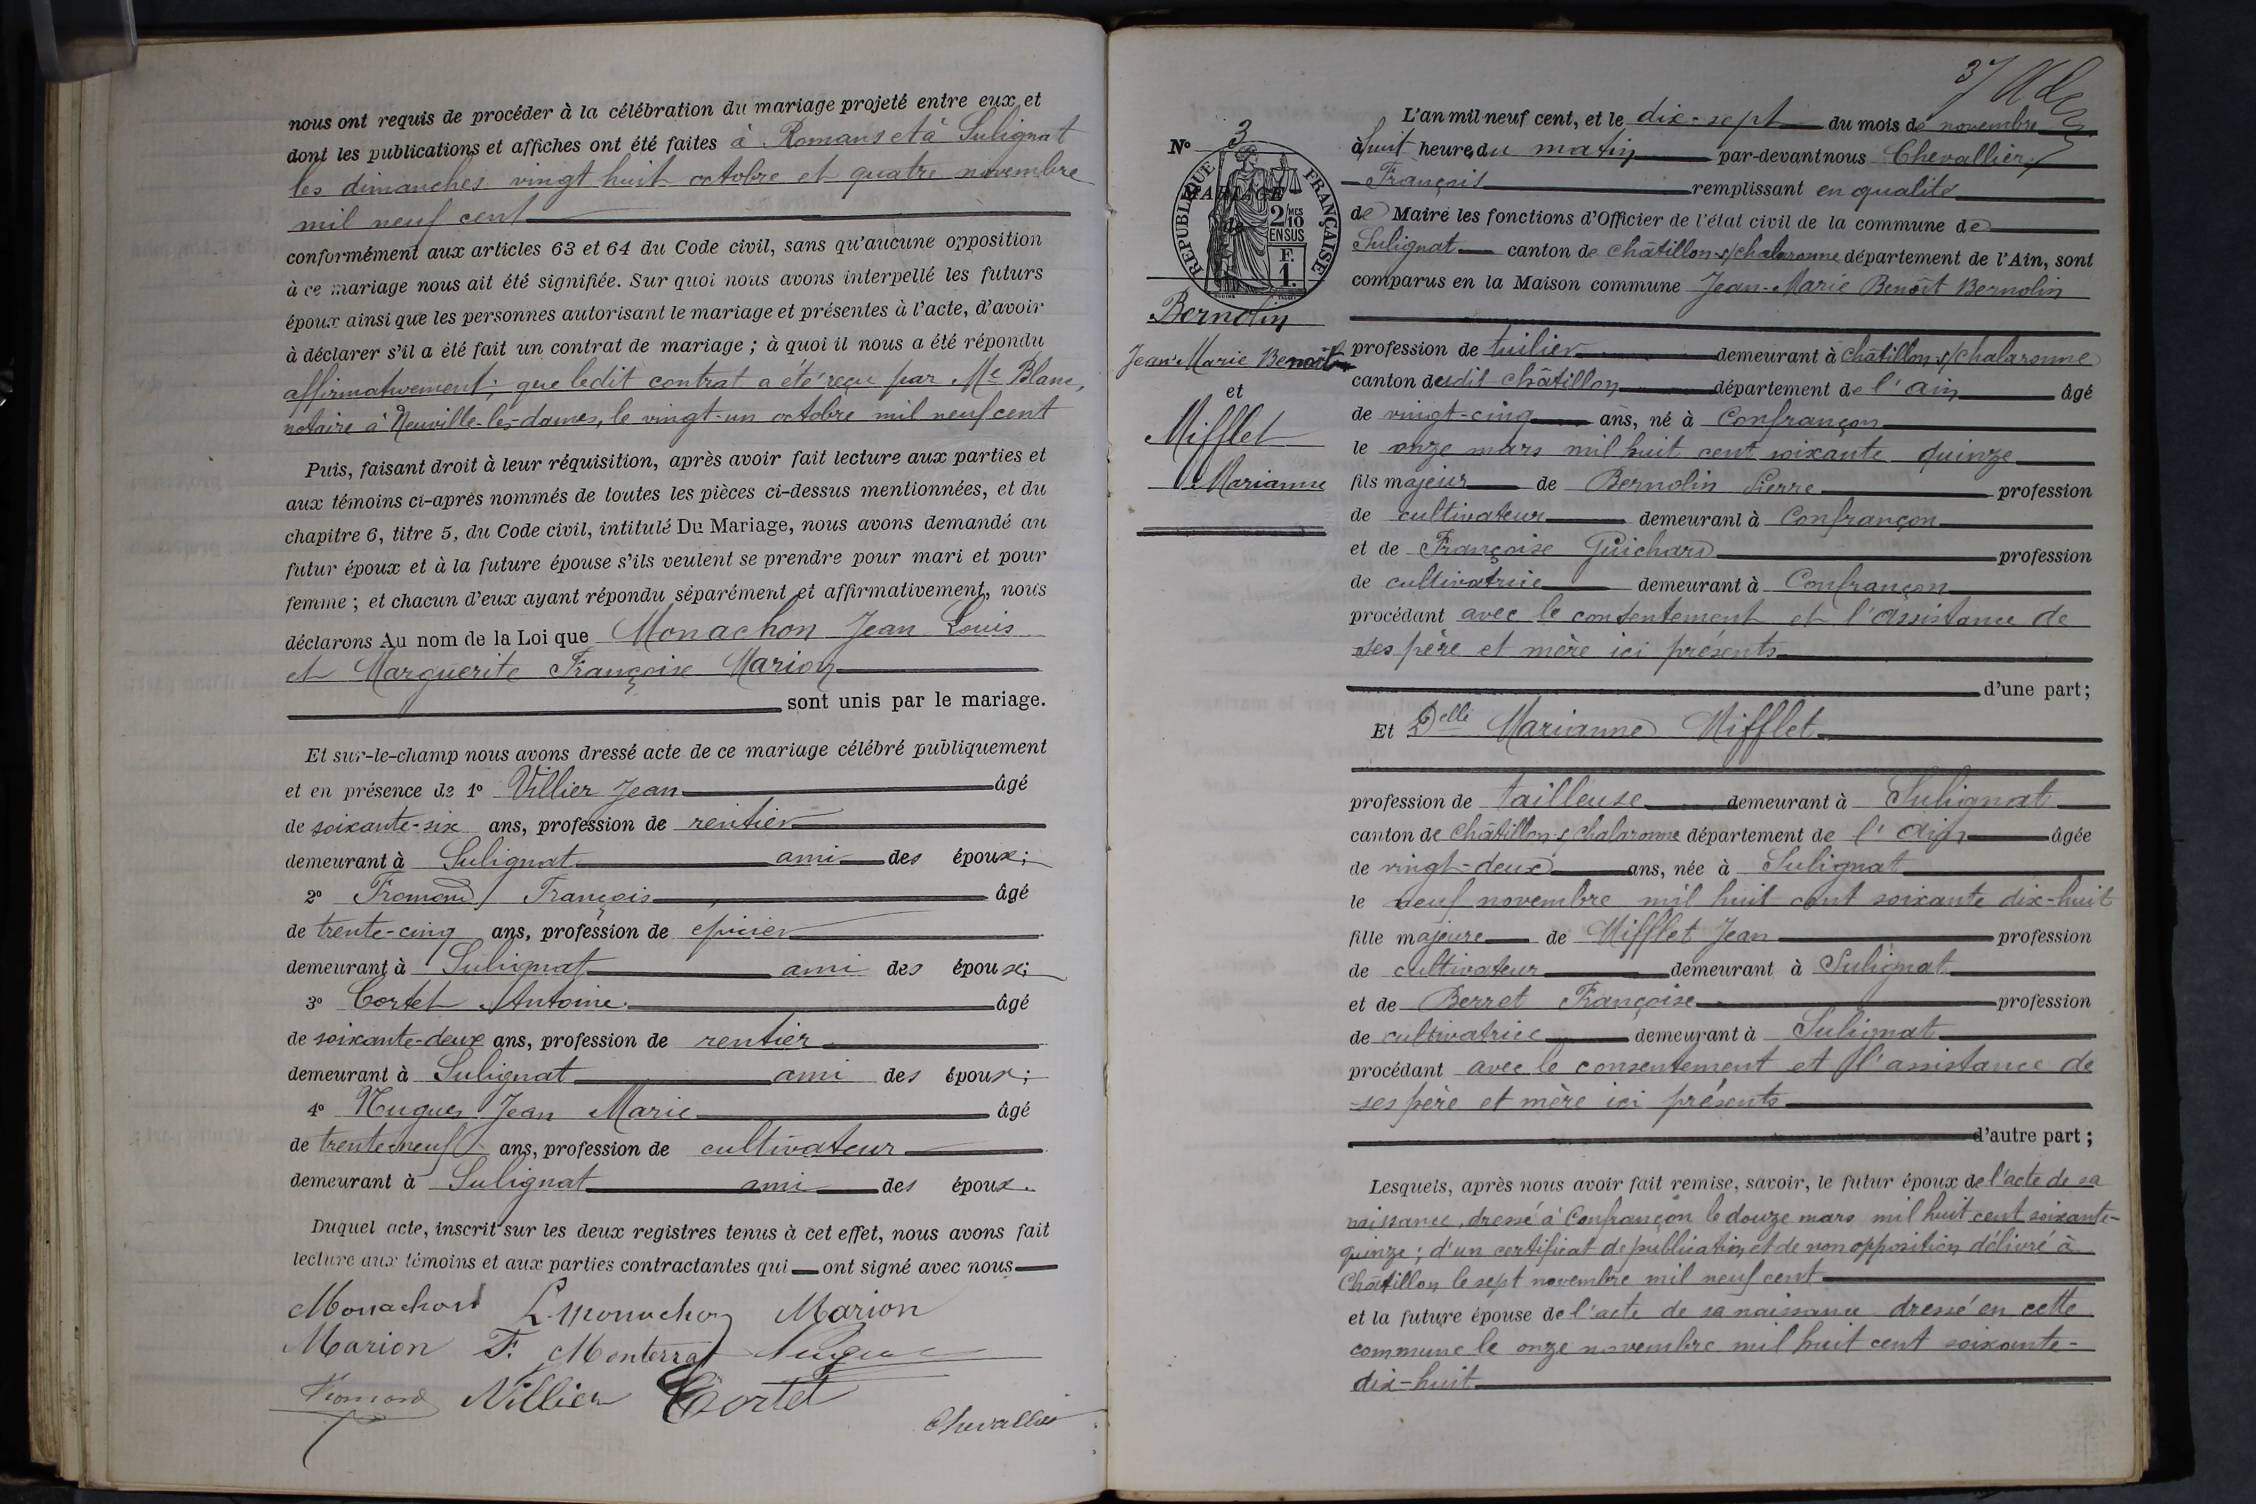 nous ont requis de procéder à la célébration du mariage projeté entre eux et
dont les publications et affiches ont été faites à Romans et à Sulignat
les dimanches vingt huit octobre et quatre novembre
mil neuf cent
conformément aux articles 63 et 64 du Code civil, sans qu'aucune opposition
à ce mariage nous ait été signifiée. Sur quoi nous avons interpellé les futurs
époux ainsi que les personnes autorisant le mariage et présentes à l'acte, d'avoir
à déclarer s'il a été fait un contrat de mariage ; à quoi il nous a été répondu
affirmativement; que ledit contrat a été reçu par Me Blanc,
notaire à Neuville-les-dames, le vingt-un octobre mil neuf cent
Puis, faisant droit à leur réquisition, après avoir fait lecture aux parties et
aux témoins ci-après nommés de toutes les pièces ci-dessus mentionnées, et du
chapitre 6, titre 5, du Code civil, intitulé Du Mariage, nous avons demandé au
futur époux et à la future épouse s'ils veulent se prendre pour mari et pour
femme ; et chacun d'eux ayant répondu séparément et affirmativement, nous
déclarons Au nom de la Loi que Monachon Jean Louis
et Marguerite Françoise Marion
sont unis par le mariage.
Et sur-le-champ nous avons dressé acte de ce mariage célébré publiquement
et en présence de 1° Villier Jean âgé
de soixante-six ans, profession de rentier
demeurant à Sulignat ami des époux;
2° Fromond François âgé
de trente-cinq ans, profession de epicier
demeurant à Sulignat ami des époux;
3° Cortet Antoine âgé
de soixante-deux ans, profession de rentier
demeurant à Sulignat ami des époux;
4° Nugues Jean Marie âgé
de trente-neuf ans, profession de cultivateur
demeurant à Sulignat ami des époux.
Duquel acte, inscrit sur les deux registres tenus à cet effet, nous avons fait
lecture aux témoins et aux parties contractantes qui ont signé avec nous
Monachon L. Monachon Marion
Marion F. Monterrat Nugues
Fromond Villier Cortet
Chevallier
37
N° 3
MARIAGE
de
RÉPUBLIQUE FRANÇAISE
2/10 MES
EN SUS
F.
1.
Bernolin
Jean-Marie Benoit
et
Mifflet
Marianne
L'an mil neuf cent, et le dix-sept du mois de novembre
à huit heure du matin par-devant nous Chevallier
François remplissant en qualité
de Maire les fonctions d'Officier de l'état civil de la commune de
Sulignat canton de Châtillon s/chalaronne département de l'Ain, sont
comparus en la Maison commune Jean-Marie Benoît Bernolin
profession de tuilier demeurant à Châtillon s/chalaronne
canton dudit Châtillon département de l'ain âgé
de vingt-cinq ans, né à Confrançon
le onze mars mil huit cent soixante quinze
fils majeur de Bernolin Pierre profession
de cultivateur demeurant à Confrançon
et de Françoise Guichard profession
de cultivatrice demeurant à Confrançon
procédant avec le consentement et l'assistance de
ses père et mère ici présents
d'une part;
Et Delle Marianne Mifflet
profession de tailleuse demeurant à Sulignat
canton de Châtillon-s/chalaronne département de l'Ain âgée
de vingt-deux ans, née à Sulignat
le neuf novembre mil huit cent soixante dix-huit
fille majeure de Mifflet Jean profession
de cultivateur demeurant à Sulignat
et de Berret Françoise profession
de cultivatrice demeurant à Sulignat
procédant avec le consentement et l'assistance de
ses père et mère ici présents
d'autre part ;
Lesquels, après nous avoir fait remise, savoir, le futur époux de l'acte de sa
naissance, dressé à Confrançon le douze mars mil huit cent soixante-
quinze ; d'un certificat de publication et de non opposition délivré à
Châtillon le sept novembre mil neuf cent
et la future épouse de l'acte de sa naissance dressé en cette
commune le onze novembre mil huit cent soixante-
dix-huit